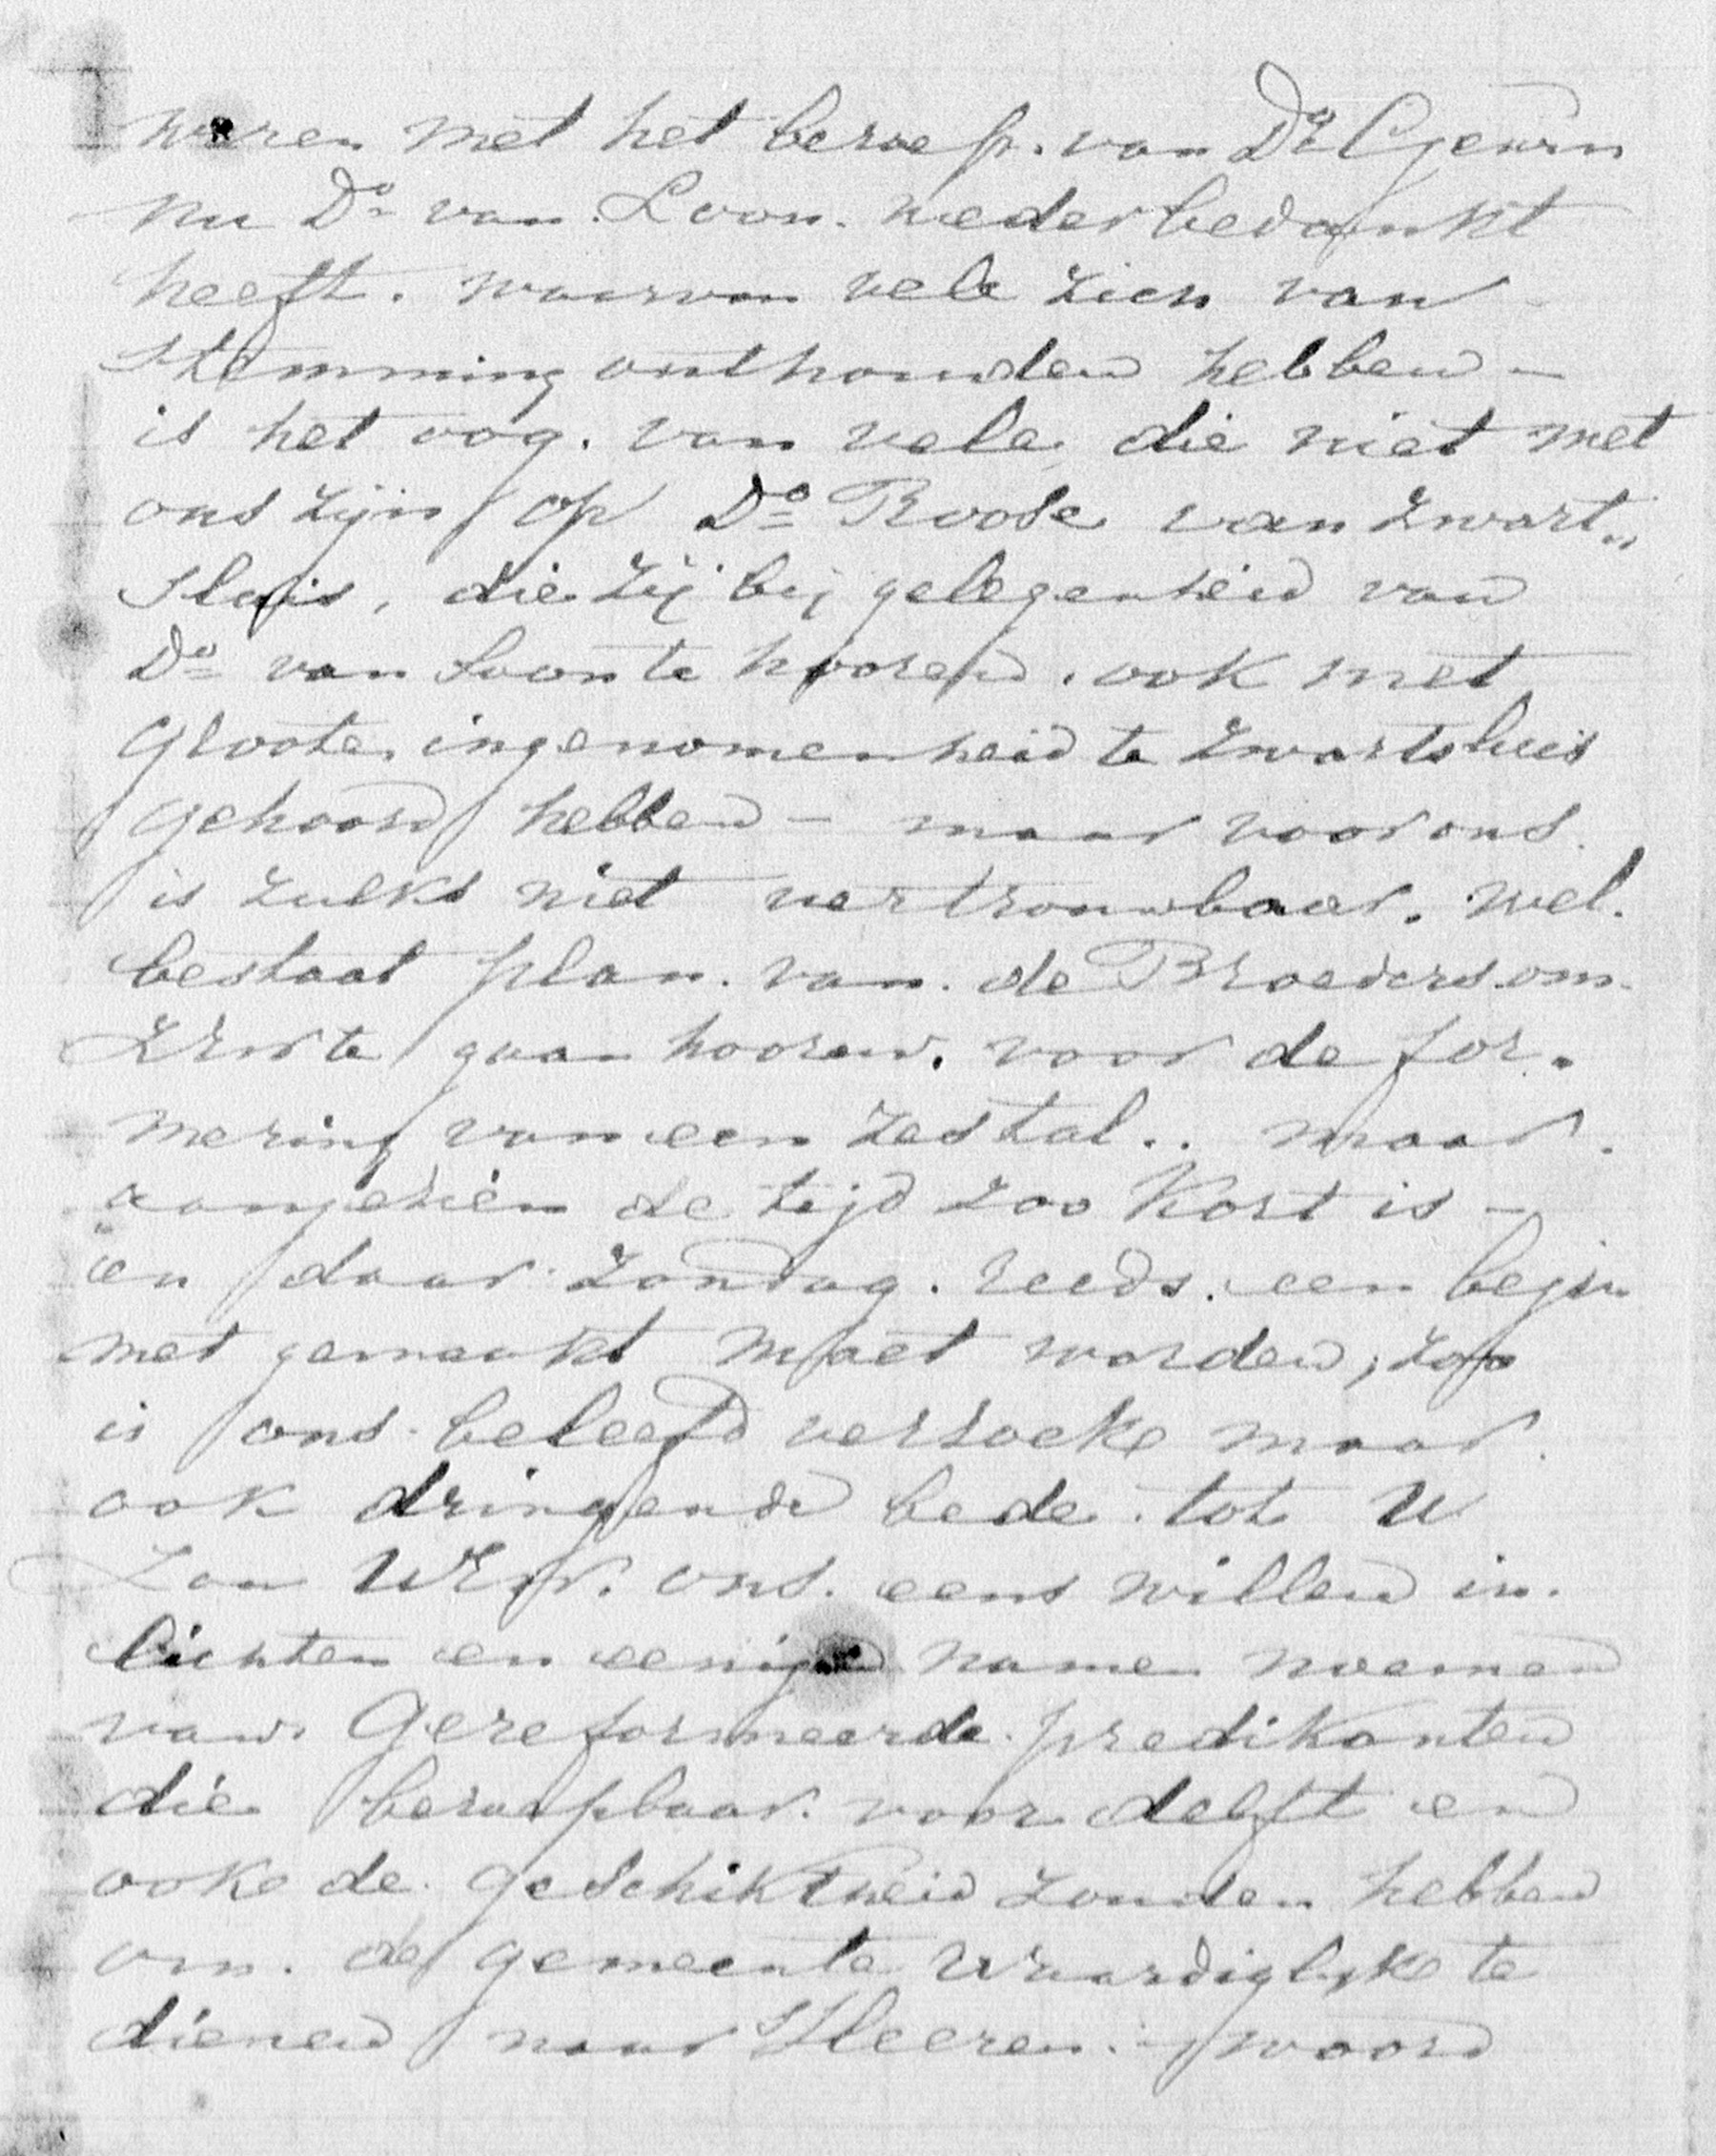 waren met het beroep. van Do Gewin
nu Do van. Loon. weder bedankt
heeft. waarvan vele zich van
stemming onthouden hebben -
is het oog. van vele die niet met
ons zijn op Do Roose van Zwart„
sluis, die zij bij gelegenheid van
Do van Loon te hooren. ook met
groote ingenomenheid te Zwartsluis
gehoord hebben - maar voor ons.
is zulks niet vertrouwbaar. wel.
bestaat plan. van. de Broeders om.
ZEw te gaan hooren. voor de for.
mering van een zestal.. maar.
aangezien de tijd zoo kort is -
en daar Zondag. reeds. een begin
met gemaakt moet worden, zoo
is ons beleefd verzoeke maar.
ook dringende bede. tot U
Zou UEw. ons. eens willen in.
lichten en eenige namen noemen
van. Gereformeerde. predikanten
die beroepbaar. voor delft en
ook de. geschiktheid zouden hebben
om. de gemeente waardiglijk te
dienen naar 's Heeren. - woord